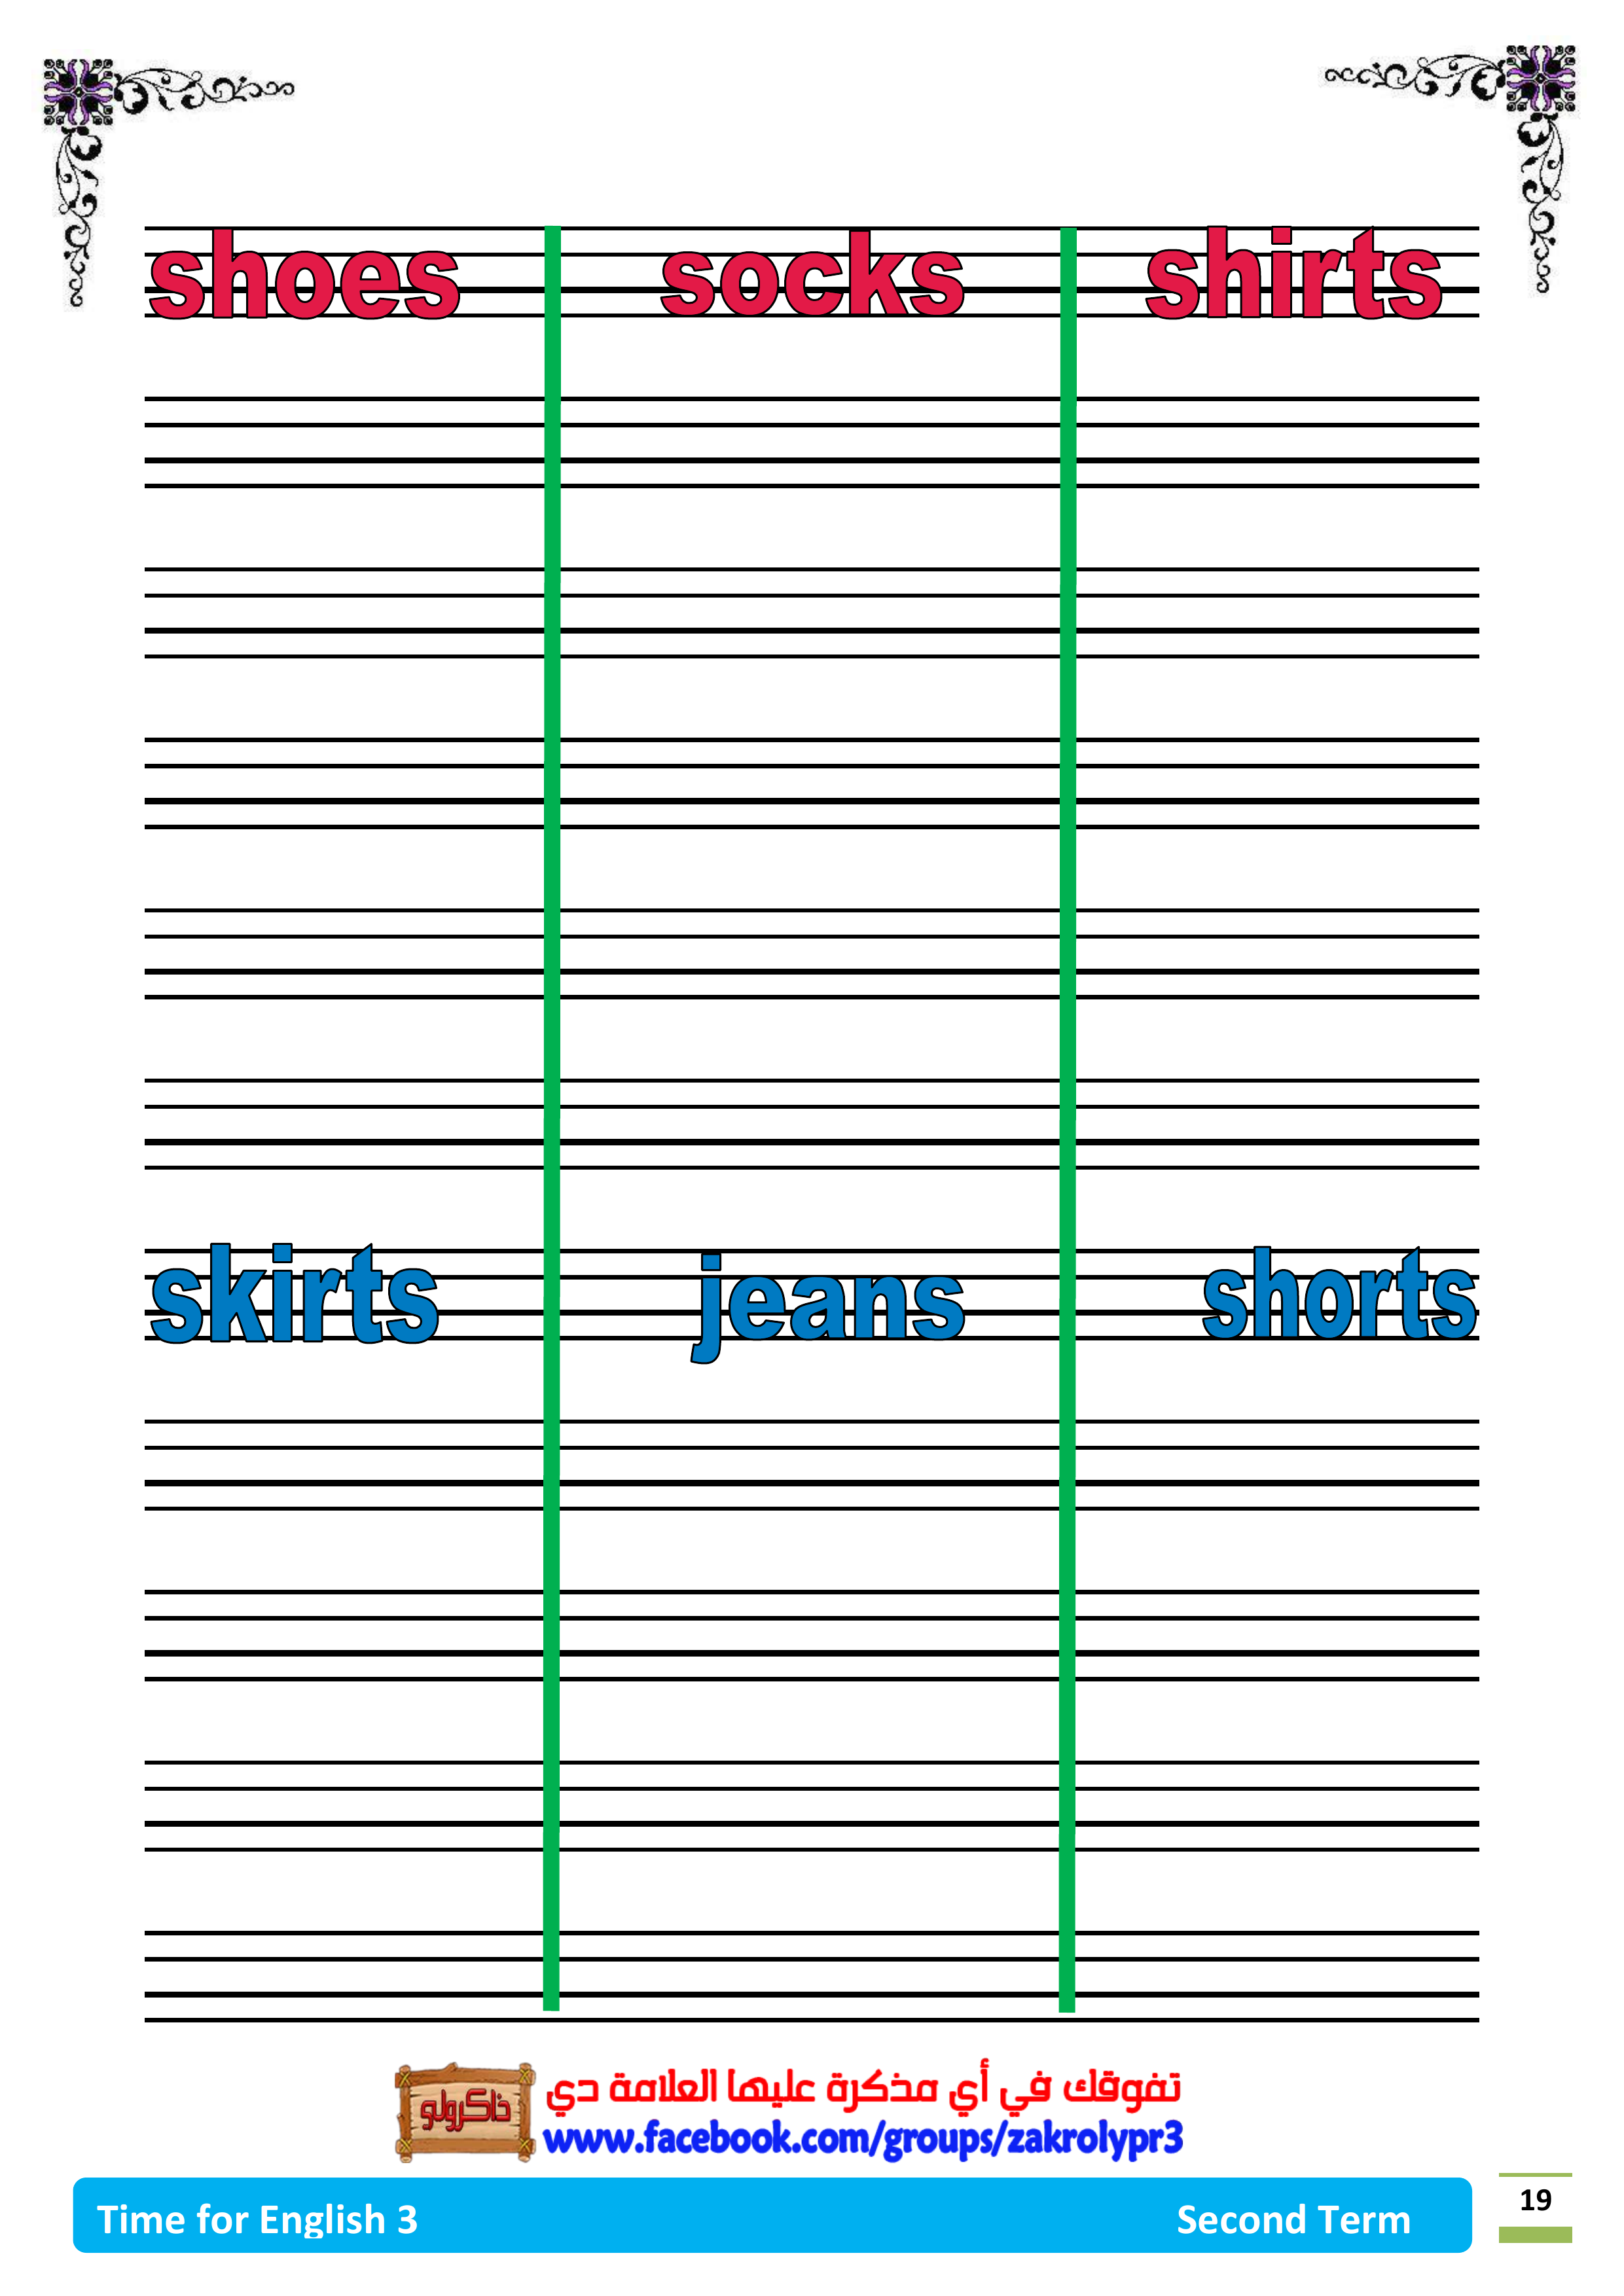 shoes socks shirts
skirts jeans shorts
ذاكرولو تفوقك في أي مذكرة عليها العلامة دي
www.facebook.com/groups/zakrolypr3
Time for English 3 Second Term 19